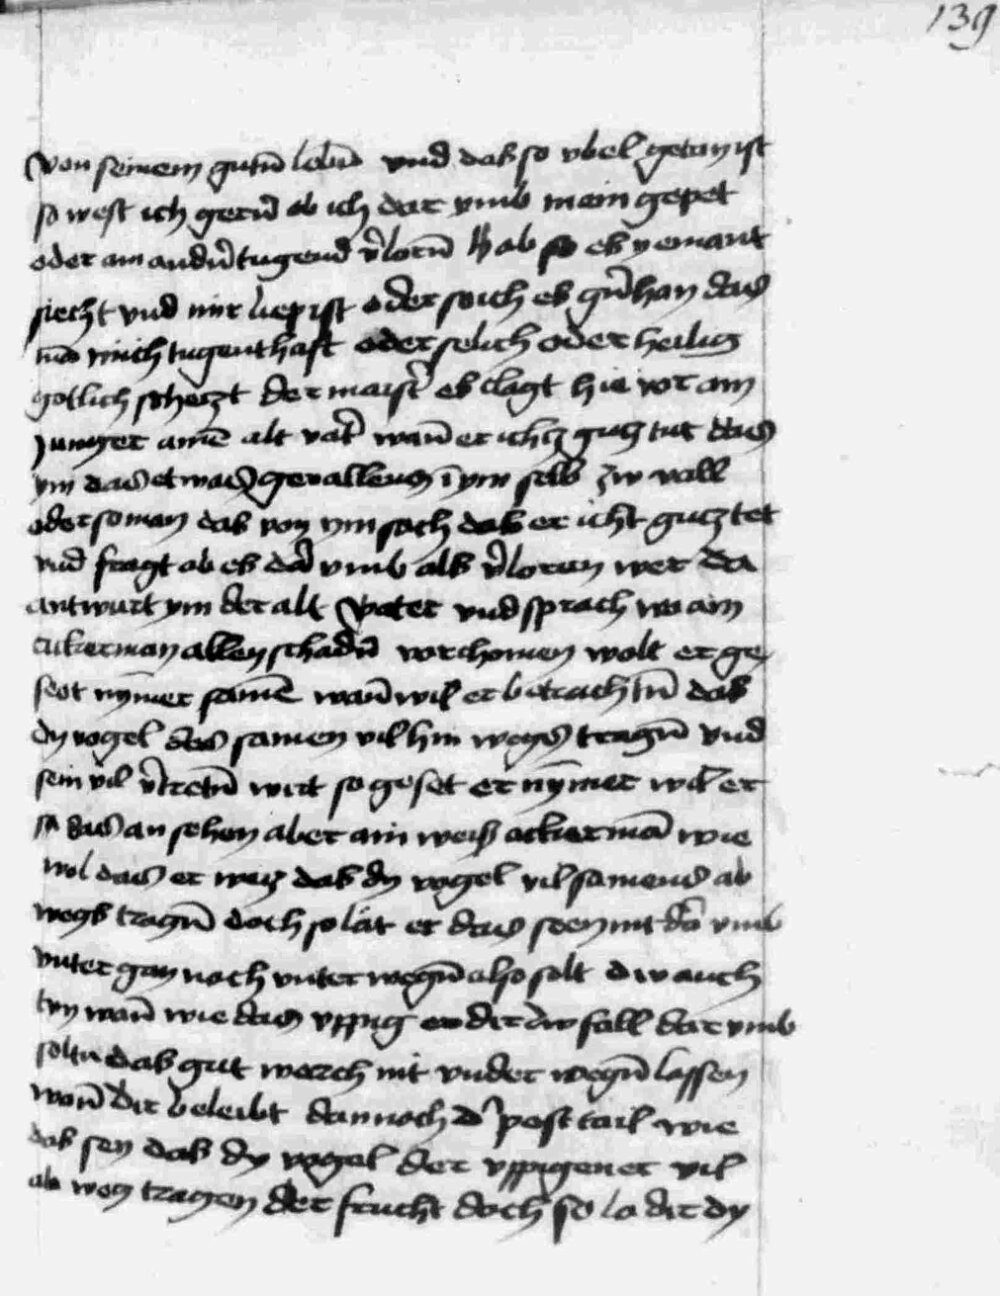 139
von seinem gutn̄ lebn̄ vnd das so vbel getan ist
so west ich gern̄ ob ich dar vmb mein gepet
oder ain andn̄ tugend v̄lorn̄ hab so es yemant
siecht vnd mir liep ist oder so ich es gn̄ han das
mich tugenthaft oder selich oder heilig
gotlich schetzt der maistr̄ es clagt hie vor ain
junger aim̄e alt vatr̄ wan̄ er ichtz gutz tut das
ym das etwas gevallens ī ym selb zw vall
oder so man das von ym sach das er icht gutz tet
vnd fragt ob es dar vmb als v̄loren wer da
antwurt ym der alt vater vnd sprach wo ain
ackerman allen schadn̄ vorchomen wolt er ge
seet nȳmer samē wan̄ wil er betrachtn̄ das
dy vogel des samen vil hin wegs tragn̄ vnd
sein vil v̄tretn̄ wirt so geset er nȳmer wil er
sa das an sehen aber ain weis ackermā wie
wol das er waiz das dy vogel vil samens ab
wegs tragn̄ doch so lat er das seen nit dar vmb
vnter gan noch vnter wegn̄ also solt dw auch
tun wan̄ wie das vppig er dir zw fall dar vmb
soltu das gut werch nit vnder wegn̄ lassen
wan̄ dir beleibt dannoch d' pest tail wie
das sey das dy vogel der vppigen er vil
ab weg tragen der frucht doch so la dir dy